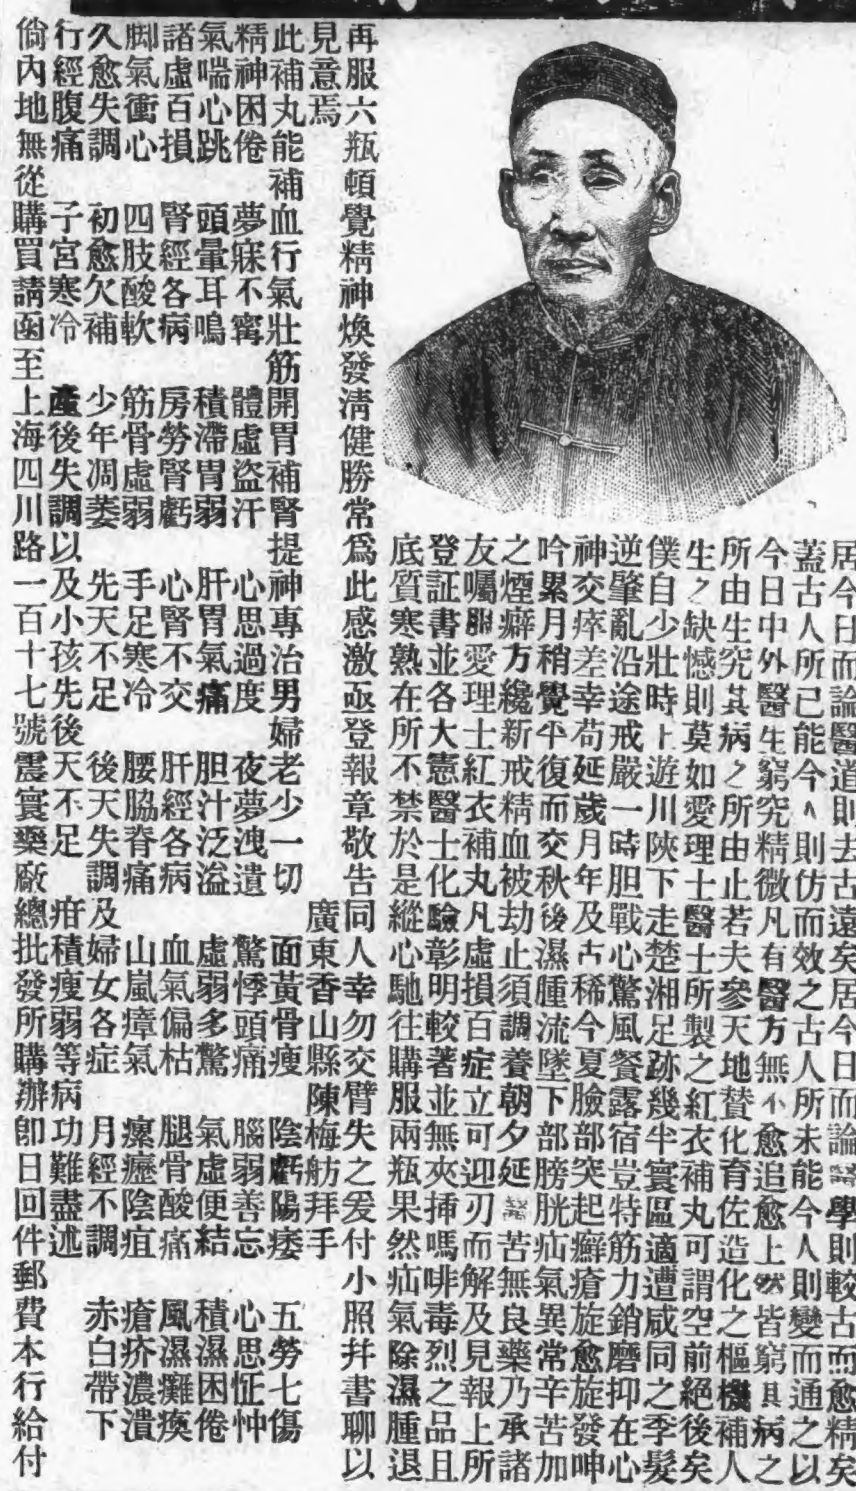 居今日而論醫道則去古遠矣居今日而論醫學則較古而愈精矣
蓋古人所已能今人則仿而效之古人所未能今人則變而通之以
今日中外醫生窮究精微凡有醫方無不愈追愈上然皆窮其病之
所由生究其病之所由止若夫參天地贊化育佐造化之樞機補人
生之缺憾則莫如愛理士醫士所製之紅衣補丸可謂空前絕後矣
僕自少壯時上遊川陝下走楚湘足跡幾半寰區適遭咸同之季髮
逆肇亂沿途戒嚴一時胆戰心驚風餐露宿豈特筋力銷磨抑在心
神交瘁差幸苟延歲月年及古稀今夏臉部突起癬瘡旋愈旋發呻
吟累月稍覺平復而交秋後濕腫流墜下部膀胱疝氣異常辛苦加
之煙癖方纔新戒精血被劫止須調養朝夕延醫苦無良藥乃承諸
友囑服愛理士紅衣補丸凡虛損百症立可迎刃而解及見報上所
登証書並各大憲醫士化驗彰明較著並無夾揷嗎啡毒烈之品且
底質寒熟在所不禁於是縱心馳往購服兩瓶果然疝氣除濕腫退
再服六瓶頓覺精神煥發清健勝常爲此感激亟登報章敬告同人幸勿交臂失之爰付小照幷書聊以
見意焉 廣東香山縣陳梅舫拜手
此補丸能補血行氣壯筋開胃補腎提神專治男婦老少一切 面黃骨瘦 陰虧陽痿 五勞七傷
精神困倦 夢寐不寗 體虛盜汗 心思過度 夜夢洩遺 驚悸頭痛 腦弱善忘 心思怔忡
氣喘心跳 頭暈耳鳴 積滯胃弱 肝胃氣痛 胆汁泛溢 虛弱多驚 氣虛便結 積濕困倦
諸虛百損 腎經各病 房勞腎虧 心腎不交 肝經各病 血氣偏枯 腿骨酸痛 風濕癱瘓
脚氣衝心 四肢酸軟 筋骨虛弱 手足寒冷 腰脇脊痛 山嵐瘴氣 瘰癧陰疽 瘡疥濃潰
久愈失調 初愈欠補 少年凋萎 先天不足 後天失調及婦女各症 月經不調 赤白帶下
行經腹痛 子宮寒冷 產後失調以及小孩先後天不足 疳積瘦弱等病功難盡述
倘內地無從購買請函至上海四川路一百十七號震寰藥廠總批發所購辦卽日回件郵費本行給付